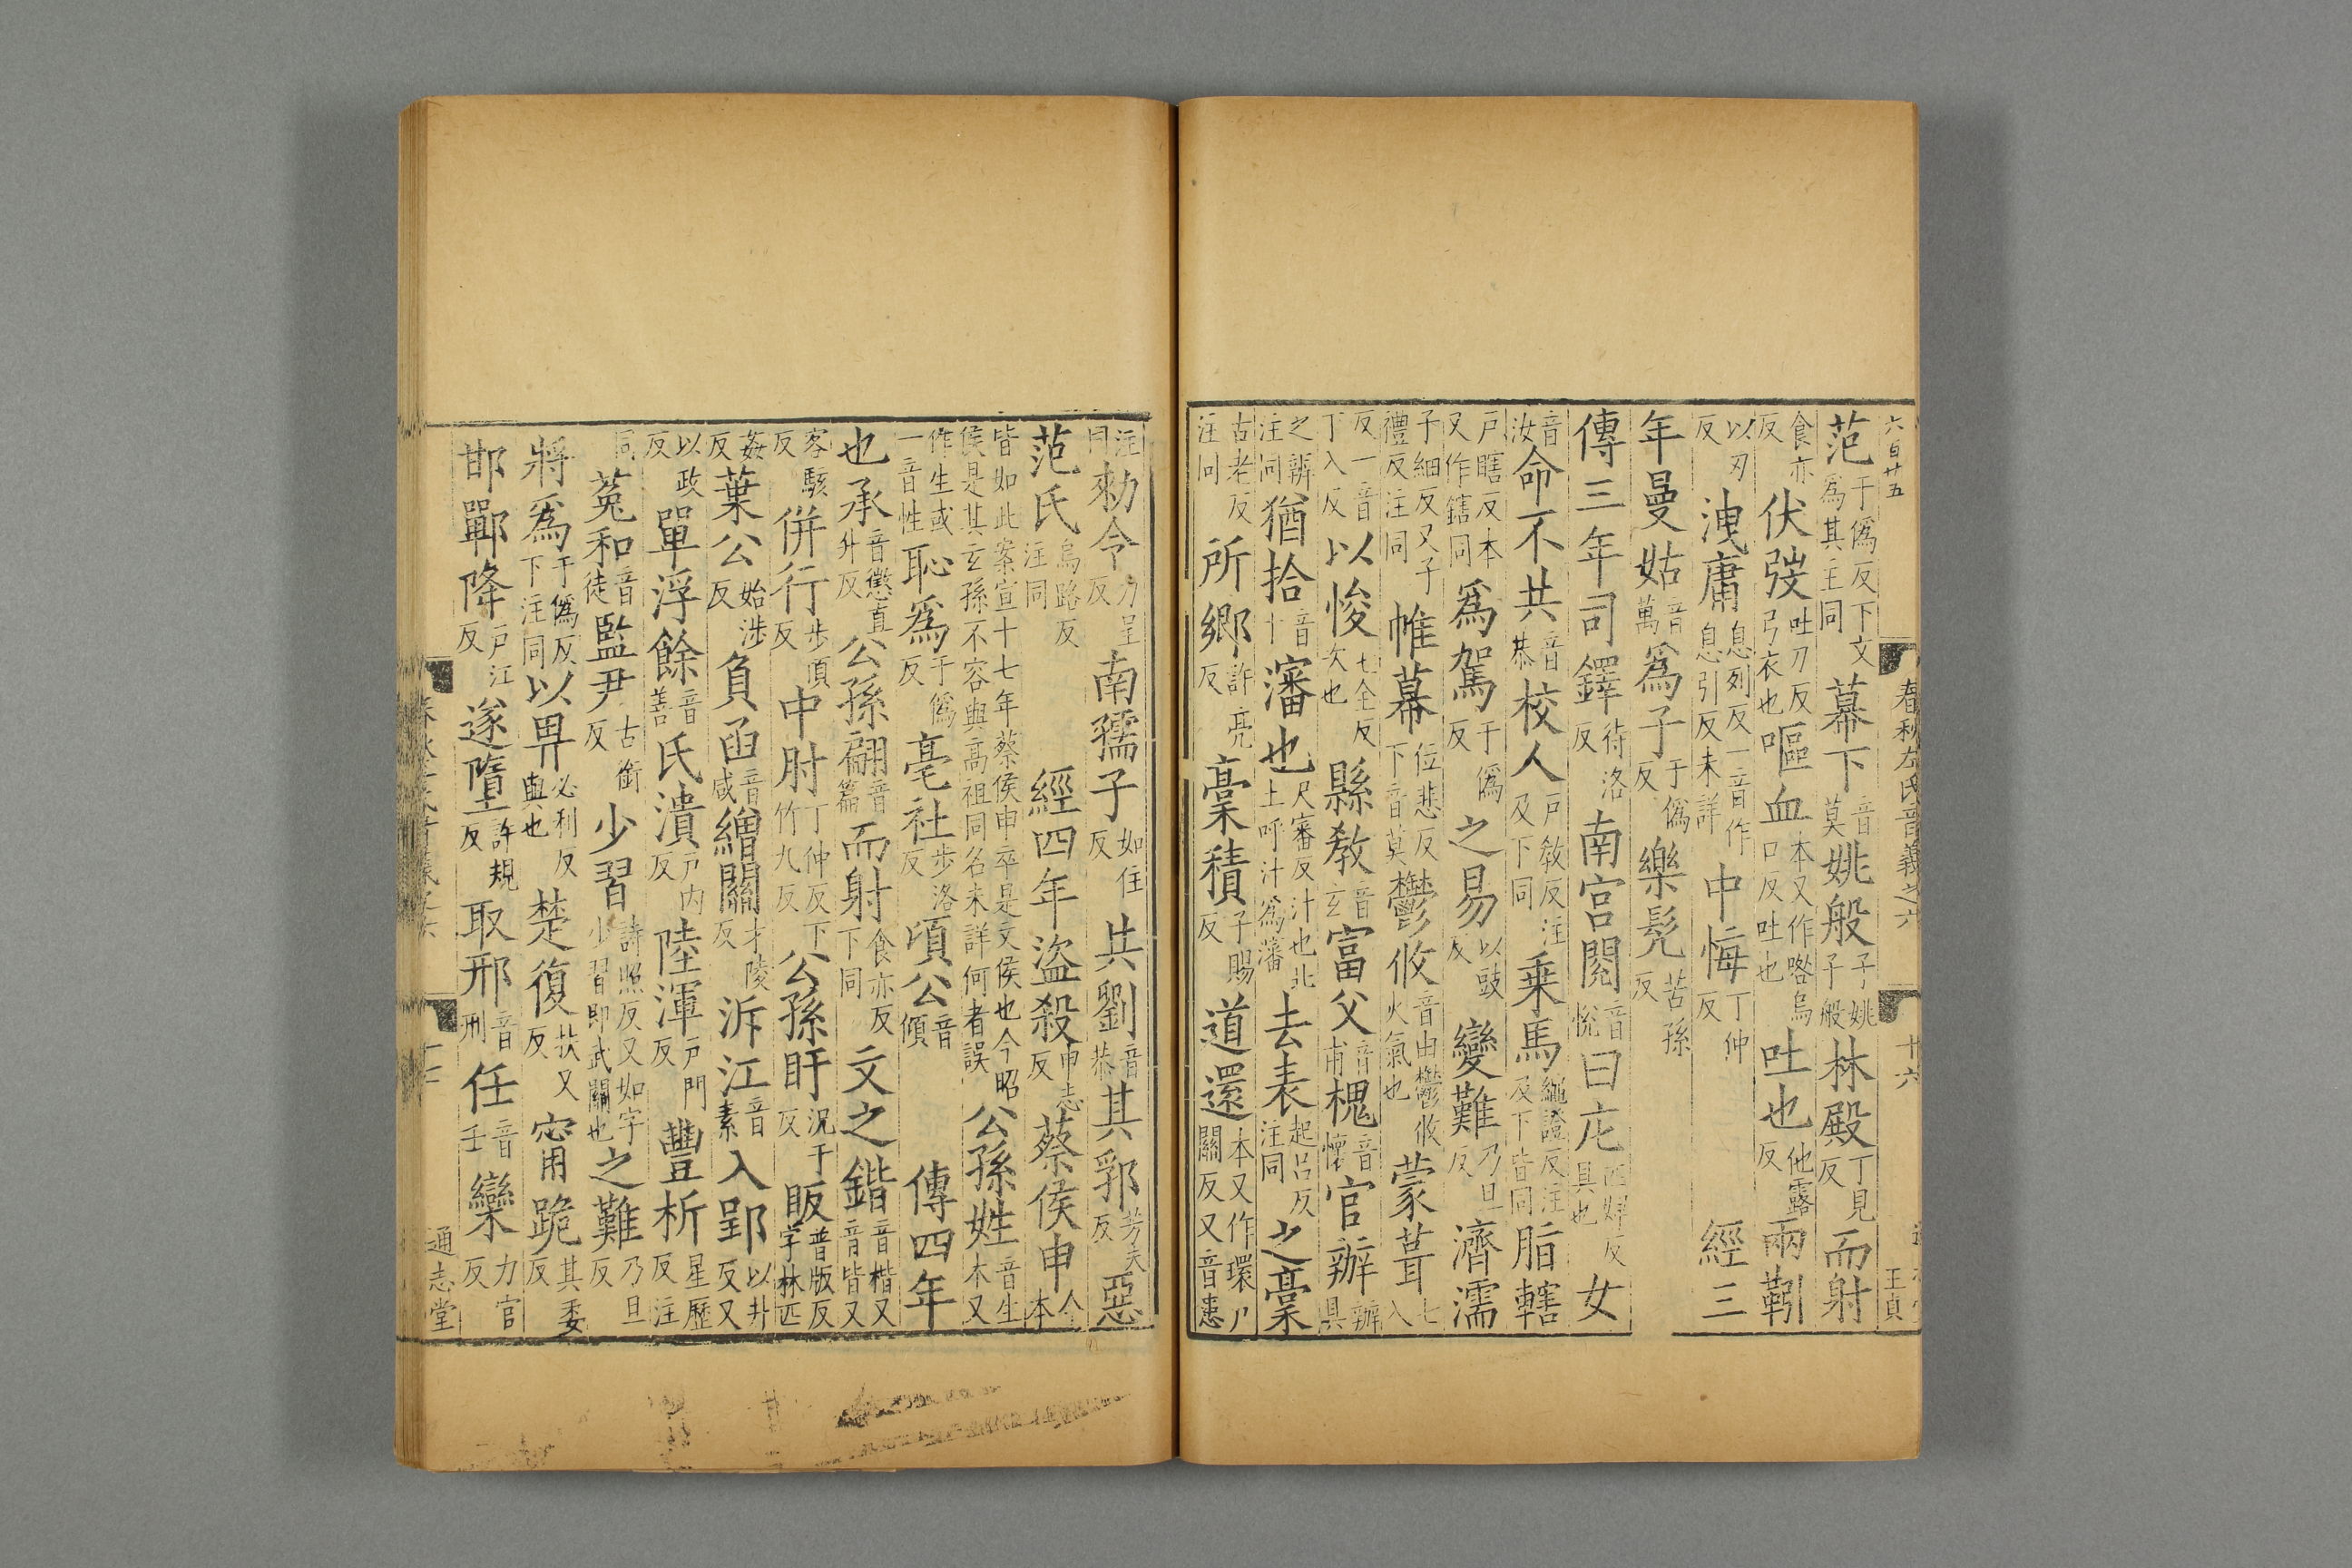 六百廿五
春秋左氏音義之六
十六
王貞
范于僞反下文爲其主同幕下音莫姚般子姚子般林殿丁見反而射
食亦反伏弢吐刀反弓衣也嘔血本又作喀烏口反吐也吐也他露反兩靷
以刃反洩庸息列反一音作息引反未詳中悔丁仲反經三
年曼姑音萬爲子于僞反樂髡苦孫反
傳三年司鐸待洛反南宮閱音悅曰庀匹婢反具也女
音汝命不共音恭校人戶敎反注及下同乗馬繩證反注及下皆同脂轄
戶瞎反本又作鎋同爲駕于僞反之易以豉反變難乃旦反濟濡
子細反又子禮反注同帷幕位悲反下音莫鬱攸音由鬱攸火氣也蒙葺七入
反一音丁入反以悛七全反次也縣敎音玄富父音甫槐音懷官辦辦具
之辨注同猶拾音十瀋也尺審反汁也北土呼汁爲瀋去表起呂反注同之槀
古老反注同所鄉許亮反槀積子賜反道還本又作環戶關反又音患
注同勑令力呈反南孺子如住反共劉音恭其郛芳夫反惡
范氏烏路反注同經四年盜殺申志反蔡侯申今本
皆如此案宣十七年蔡侯申卒是文侯也今昭侯是其玄孫不容與高祖同名未詳何者誤公孫姓音生本又
作生或一音性恥爲于僞反亳社步洛反頃公音傾傳四年
也承音懲直升反公孫翩音篇而射食亦反下同文之鍇音楷又音皆又
客駭反併行步頂反中肘丁仲反下竹九反公孫盱況于反販普版反字林匹
姦反葉公始涉反負函音咸繒關才陵反泝江音素入郢以井反又
以政反單浮餘音善氏潰戶內反陸渾戶門反豐析星歷反注
同菟和音徒監尹古銜反少習詩照反又如字少習即武關也之難乃旦反
將爲于僞反下注同以畀必利反與也楚復扶又反甯跪其委反
邯鄲降戶江反遂墮許規反取邢音刑任音壬欒力官反
通志堂